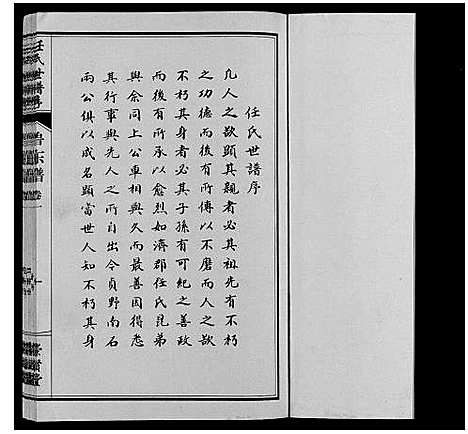 任氏世譜序
凡人之欲顕其親者必其祖先有不朽
之功德而後有所傳以不磨而人之欲
不朽其身者必其子孫有可紀之善政
而後有所承以愈烈如濟郡任氏昆弟
與余同上公車相與久而最善因得悉
其行事與先人之所自出今貞野南石
兩公俱以成名顕當世人知不朽其身
任氏世譜